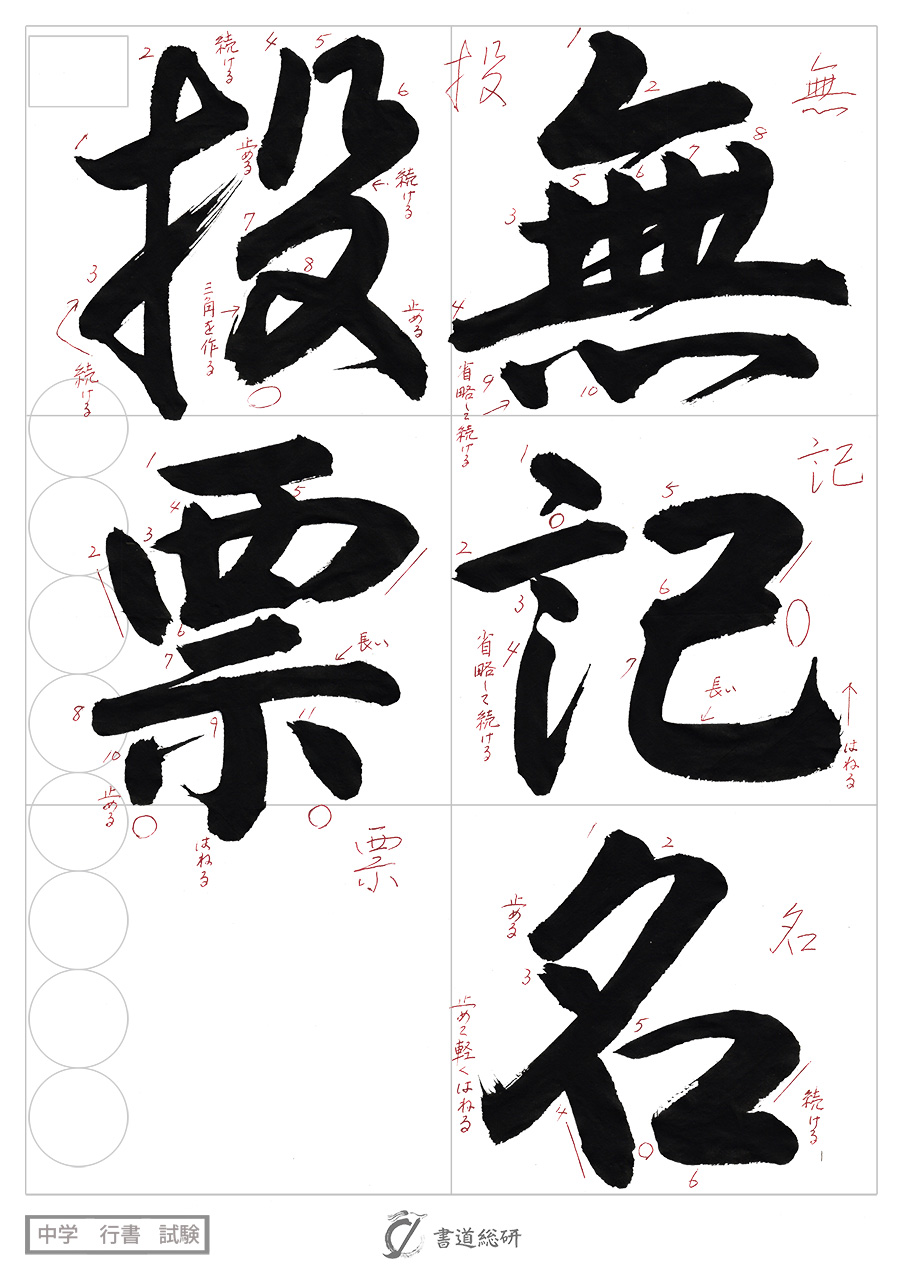 無記名
投票
無
1
2
3
4
5
6
7
8
9
10
省略して続ける
記
1
2
3
4
5
6
7
省略して続ける
長い
はねる
名
1
2
3
4
5
6
止める
止めて軽くはねる
続ける
投
1
2
3
4
5
6
7
8
続ける
止める
続ける
三角を作る
止める
続ける
票
1
2
3
4
5
6
7
8
9
10
11
長い
止める
はねる
中学 行書 試験
書道総研